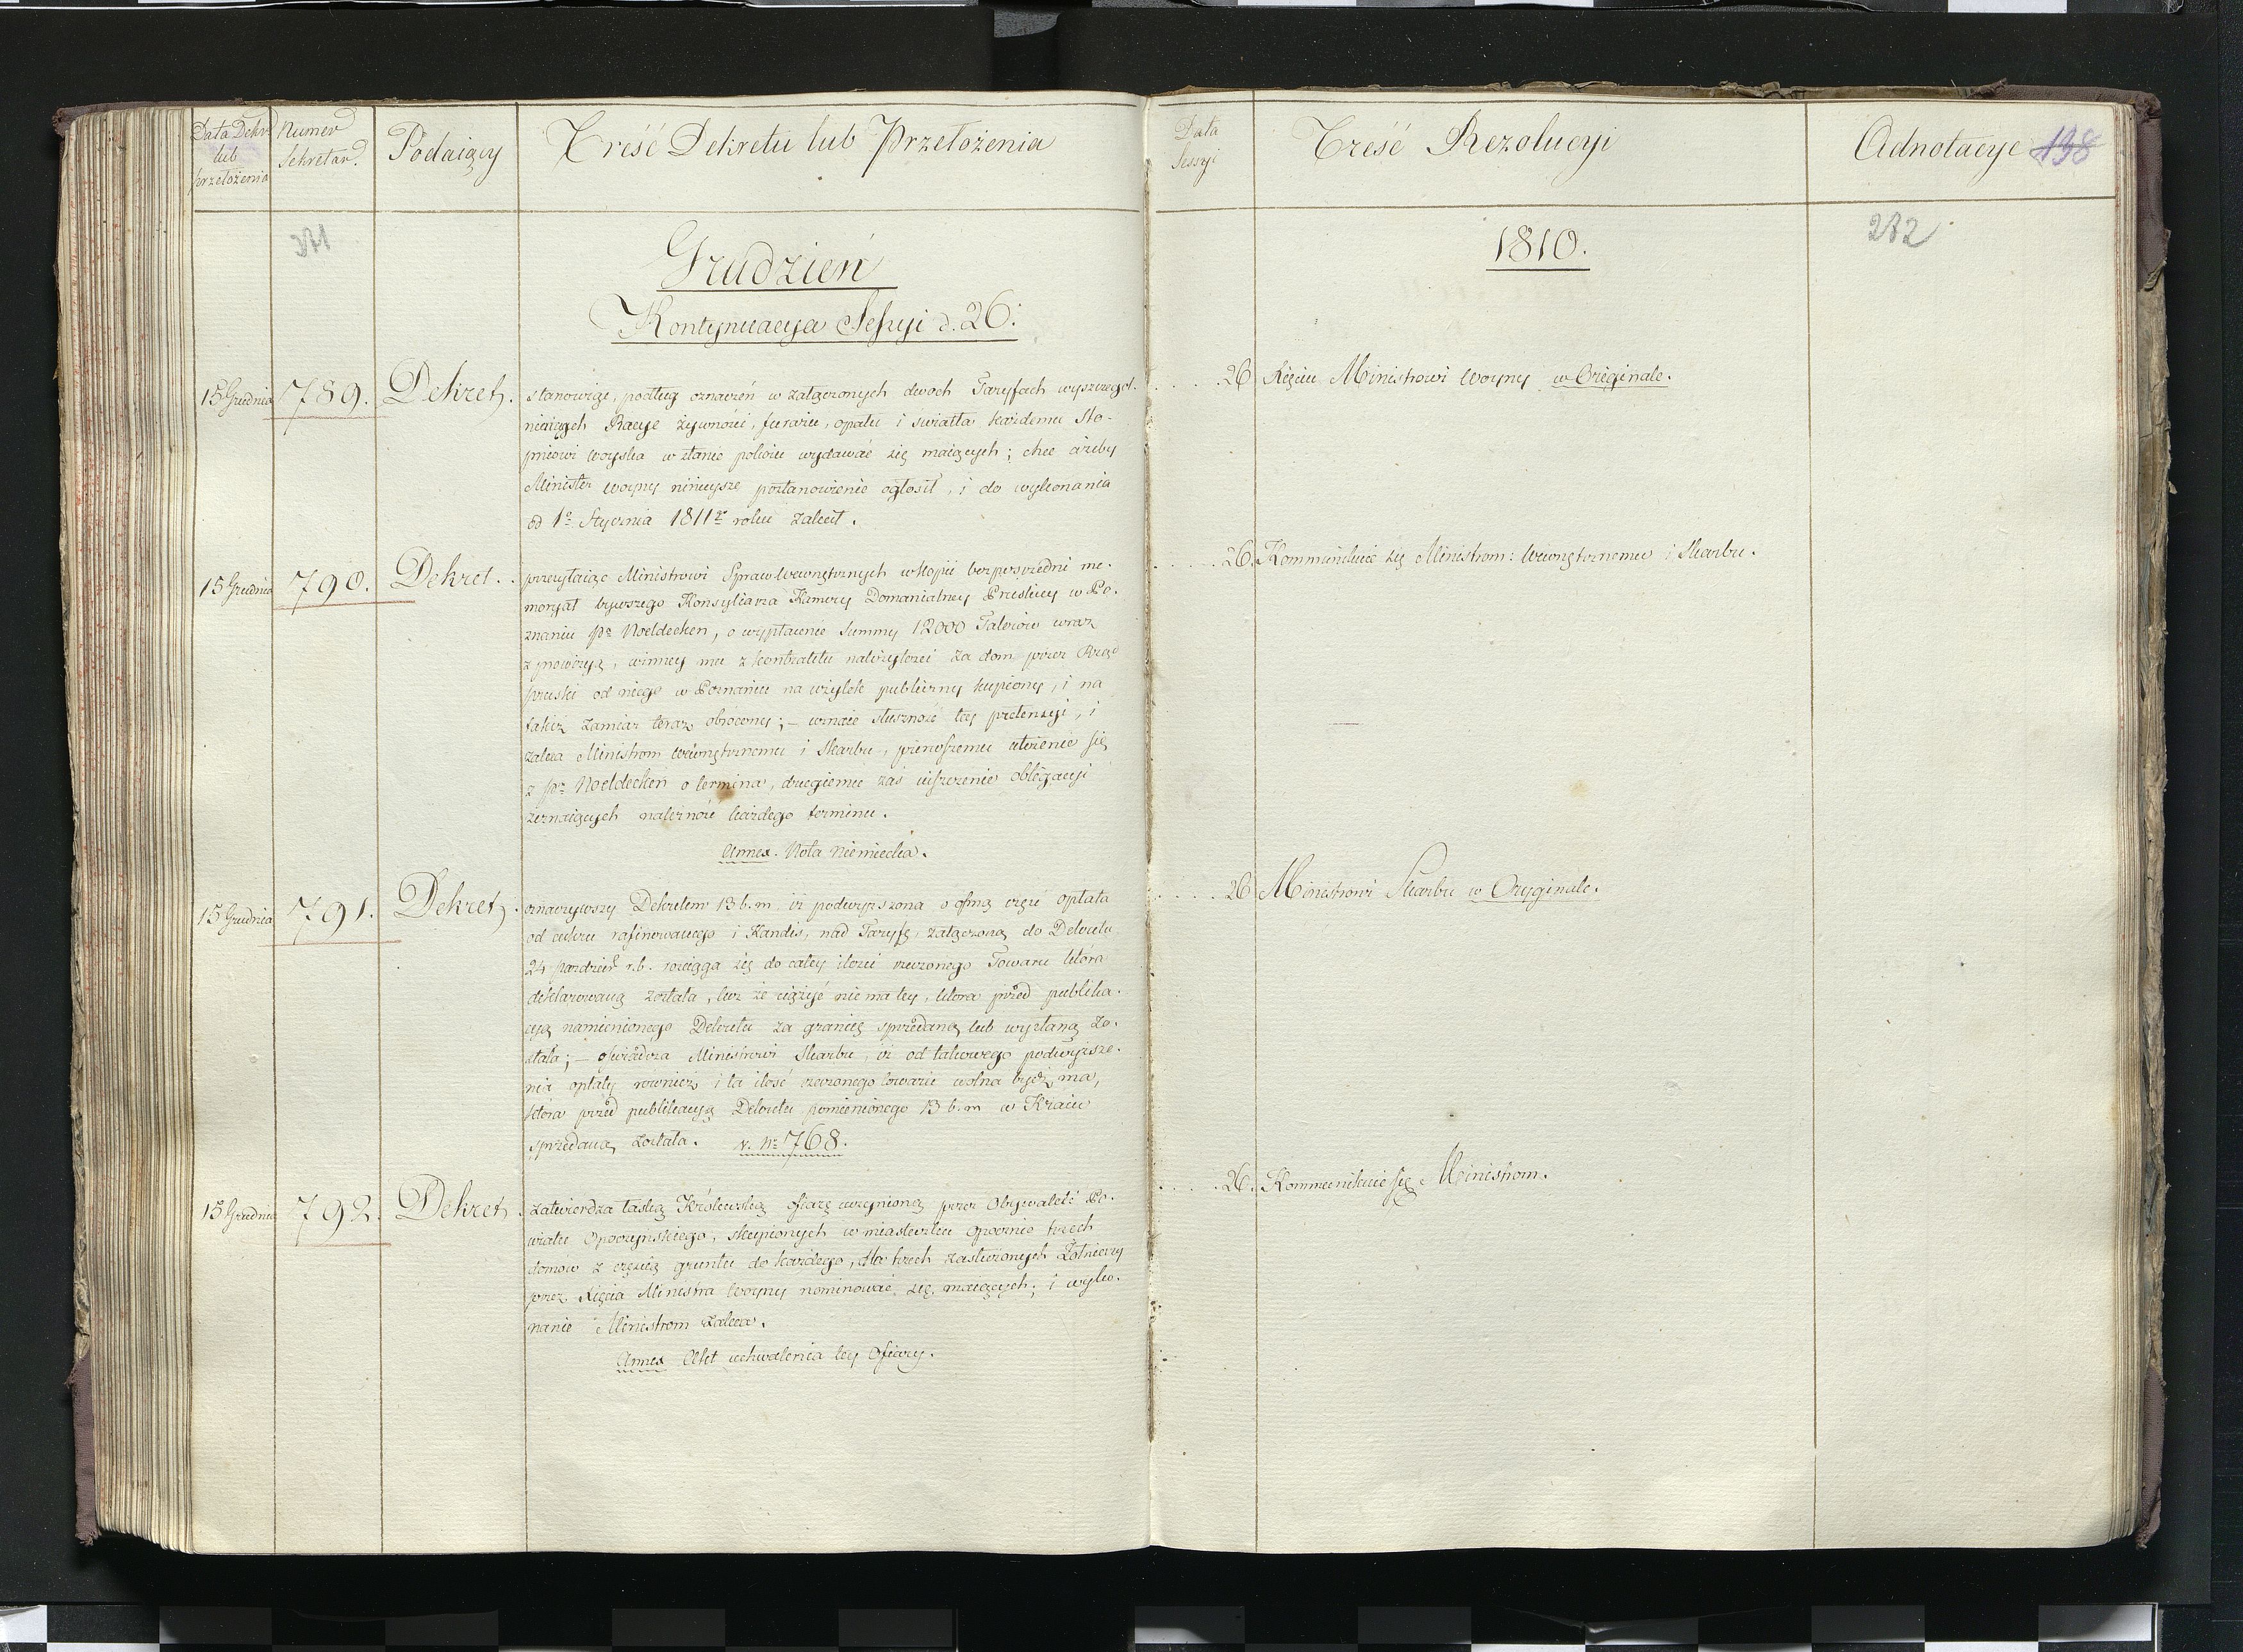 Data Dekr.
lub
przełożenia
Numer
Sekretar.
Podaiący
Treść Dekretu lub Przełożenia
Data
Sessyi
Treść Rezolucyi
Adnotacye
198
371
272
Grudzień
1810.
Kontynuacya Sessyi d. 26.
15 Grudnia 789. Dekret.
stanowiąc, podług oznaczeń w załączonych dwoch Taryfach wyszczegol-
niaiących Racye żywności, furażu, opału i światła każdemu Sto-
pniowi woyska w stanie pokoiu wydawać się maiących; chce ażeby
Minister woyny ninieysze postanowienie ogłosił, i do wykonania
od 1o Stycznia 1811go roku zalecił.
26 Xięciu Ministrowi Woyny w Originale.
15 Grudnia 790. Dekret.
przesyłaiąc Ministrowi Spraw Wewnętrznych w kopii bezpośredni me-
moryał bywszego Konsyliarza Kamery Domanialney Pruskiey w Po-
znaniu Pa Noeldechen, o wypłacenie Summy 12000 Talerów wraz
z prowizyą, winney mu z kontraktu należytości za dom przez Rząd
pruski od niego w Poznaniu na użytek publiczny kupiony, i na
takiż zamiar teraz obrócony; – uznaie słuszność tey pretensyi, i
zaleca Ministrom Wewnętrznemu i Skarbu, pierwszemu ułożenie się
z Pm Noeldechen o termina, drugiemu zaś uiszczenie obligacyi
zeznaiących należność każdego terminu.
Annex. Nota Niemiecka.
26. Kommunikuie się Ministrom: Wewnętrznemu i Skarbu.
15 Grudnia 791. Dekret.
oznaczywszy Dekretem 13 b. m. iż podwyższona o osmą część opłata
od cukru rafinowanego i Kandis, nad Taryfę, załączoną do Dekretu
24 pazdzier. r. b. rozciąga się do całey ilości rzeczonego Towaru która
deklarowaną została, lecz że ciążyć nie ma tey, ktora przed publika-
cyą namienionego Dekretu za granicę sprzedaną lub wysłaną zo-
stała; – oświadcza Ministrowi Skarbu, iż od takowego podwyższe-
nia opłaty rownież i ta ilość rzeczonego towaru wolna bydź ma,
która przed publikacyą Dekretu pomienionego 13 b. m w Kraiu
sprzedaną została. v. No 768.
26 Ministrowi Skarbu w Oryginale.
15 Grudnia 792. Dekret.
zatwierdza łaską Królewską ofiarę uczynioną przez Obywateli Po-
wiatu Opoczyńskiego, skupionych w miasteczku Opocznie trzech
domow z częścią gruntu do każdego, dla trzech zasłużonych Żołnierzy
przez Xięcia Ministra Woyny nominować się maiących; i wyko-
nanie Ministrom zaleca.
Annex Akt uchwalenia tey Ofiary.
26. Kommunikuie się Ministrom.